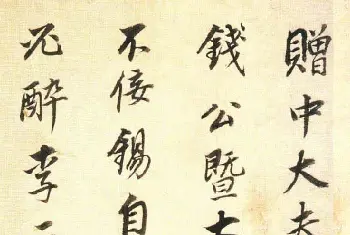 贈中大夫
錢公暨
不佞錫自
醉李